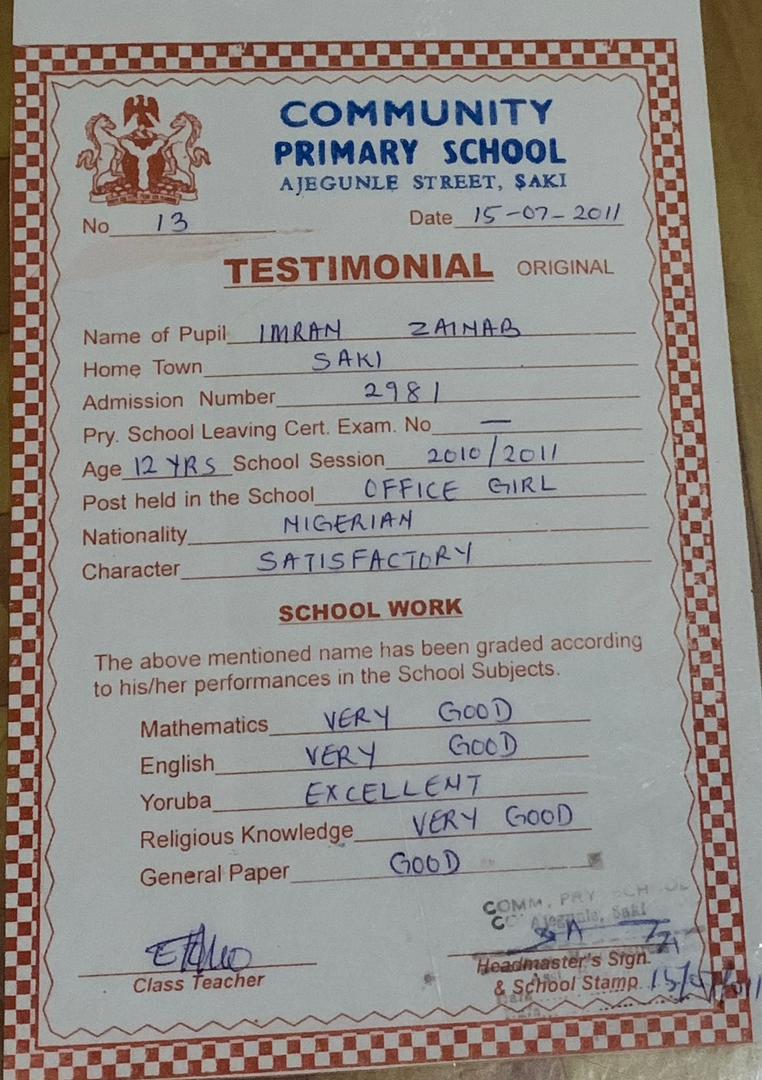 COMMUNITY
PRIMARY SCHOOL
AJEGUNLE STREET, SAKI
No 13 Date 15-07-2011
TESTIMONIAL ORIGINAL
Name of Pupil IMRAN ZAINAB
Home Town SAKI
Admission Number 2981
Pry. School Leaving Cert. Exam. No —
Age 12 YRS School Session 2010/2011
Post held in the School OFFICE GIRL
Nationality NIGERIAN
Character SATISFACTORY
SCHOOL WORK
The above mentioned name has been graded according
to his/her performances in the School Subjects.
Mathematics VERY GOOD
English VERY GOOD
Yoruba EXCELLENT
Religious Knowledge VERY GOOD
General Paper GOOD
COMM. PRY SCHOOL
Ajegunle, Saki
Class Teacher
Headmaster's Sign.
& School Stamp 15/07/2011